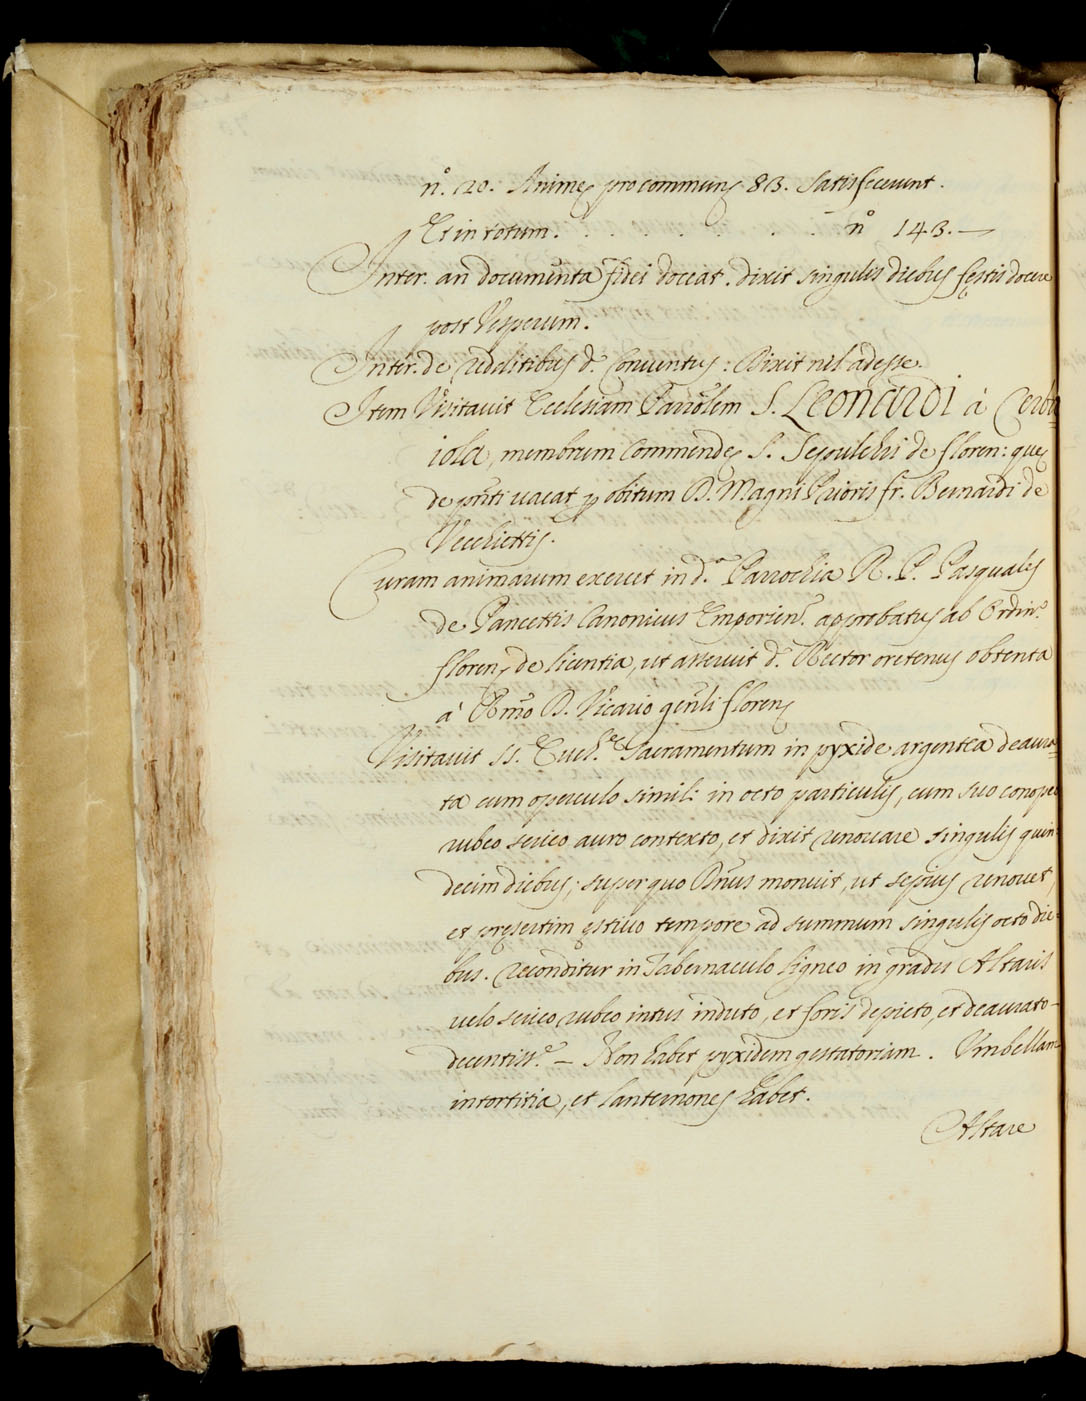 n.º 20. Animę pro communę 83. Satisfecerunt.
Et in totum. . . . . . . . . . nº 143. —
Inter. an documenta fidei doceat. dixit singulis diebus festis docere
post Vesperum.
Inter. de redditibus d. Conventus: Dixit nil adesse.
Item Visitavit Ecclesiam Parrõlem S. Leonardi à Cerba=
iola, membrum Commendę S. Sepulchri de floren: quę
de pñti vacat p obitum D. Magni Prioris fr. Bernardi de
Vecchiettis.
Curam animarum exercet in d.ª Parrochia R. P. Pasqualis
de Pancettis Canonicus Emporien. approbatus ab Ordin.º
floren, de licentia, ut asseruit d. Rector oretenus obtenta
à Rmõ D. Vicario gñli floren,
Visitavit SS. Euch.æ Sacramentum in pyxide argentea deaura=
ta cum operculo simili in octo particulis, cum suo conopeo
rubeo serico auro contexto, et dixit renovare singulis quin
decim diebus; super quo Dñus monuit, ut sepius renovet,
et pręsertim ęstivo tempore ad summum singulis octo die=
bus. reconditur in Tabernaculo ligneo in gradu Altaris
velo serico rubeo intus induto, et foris depicto, et deaurato
decentiss.e — Non habet pyxidem gestatoriam. Umbellam
intortitia, et lanternones habet.
Altare